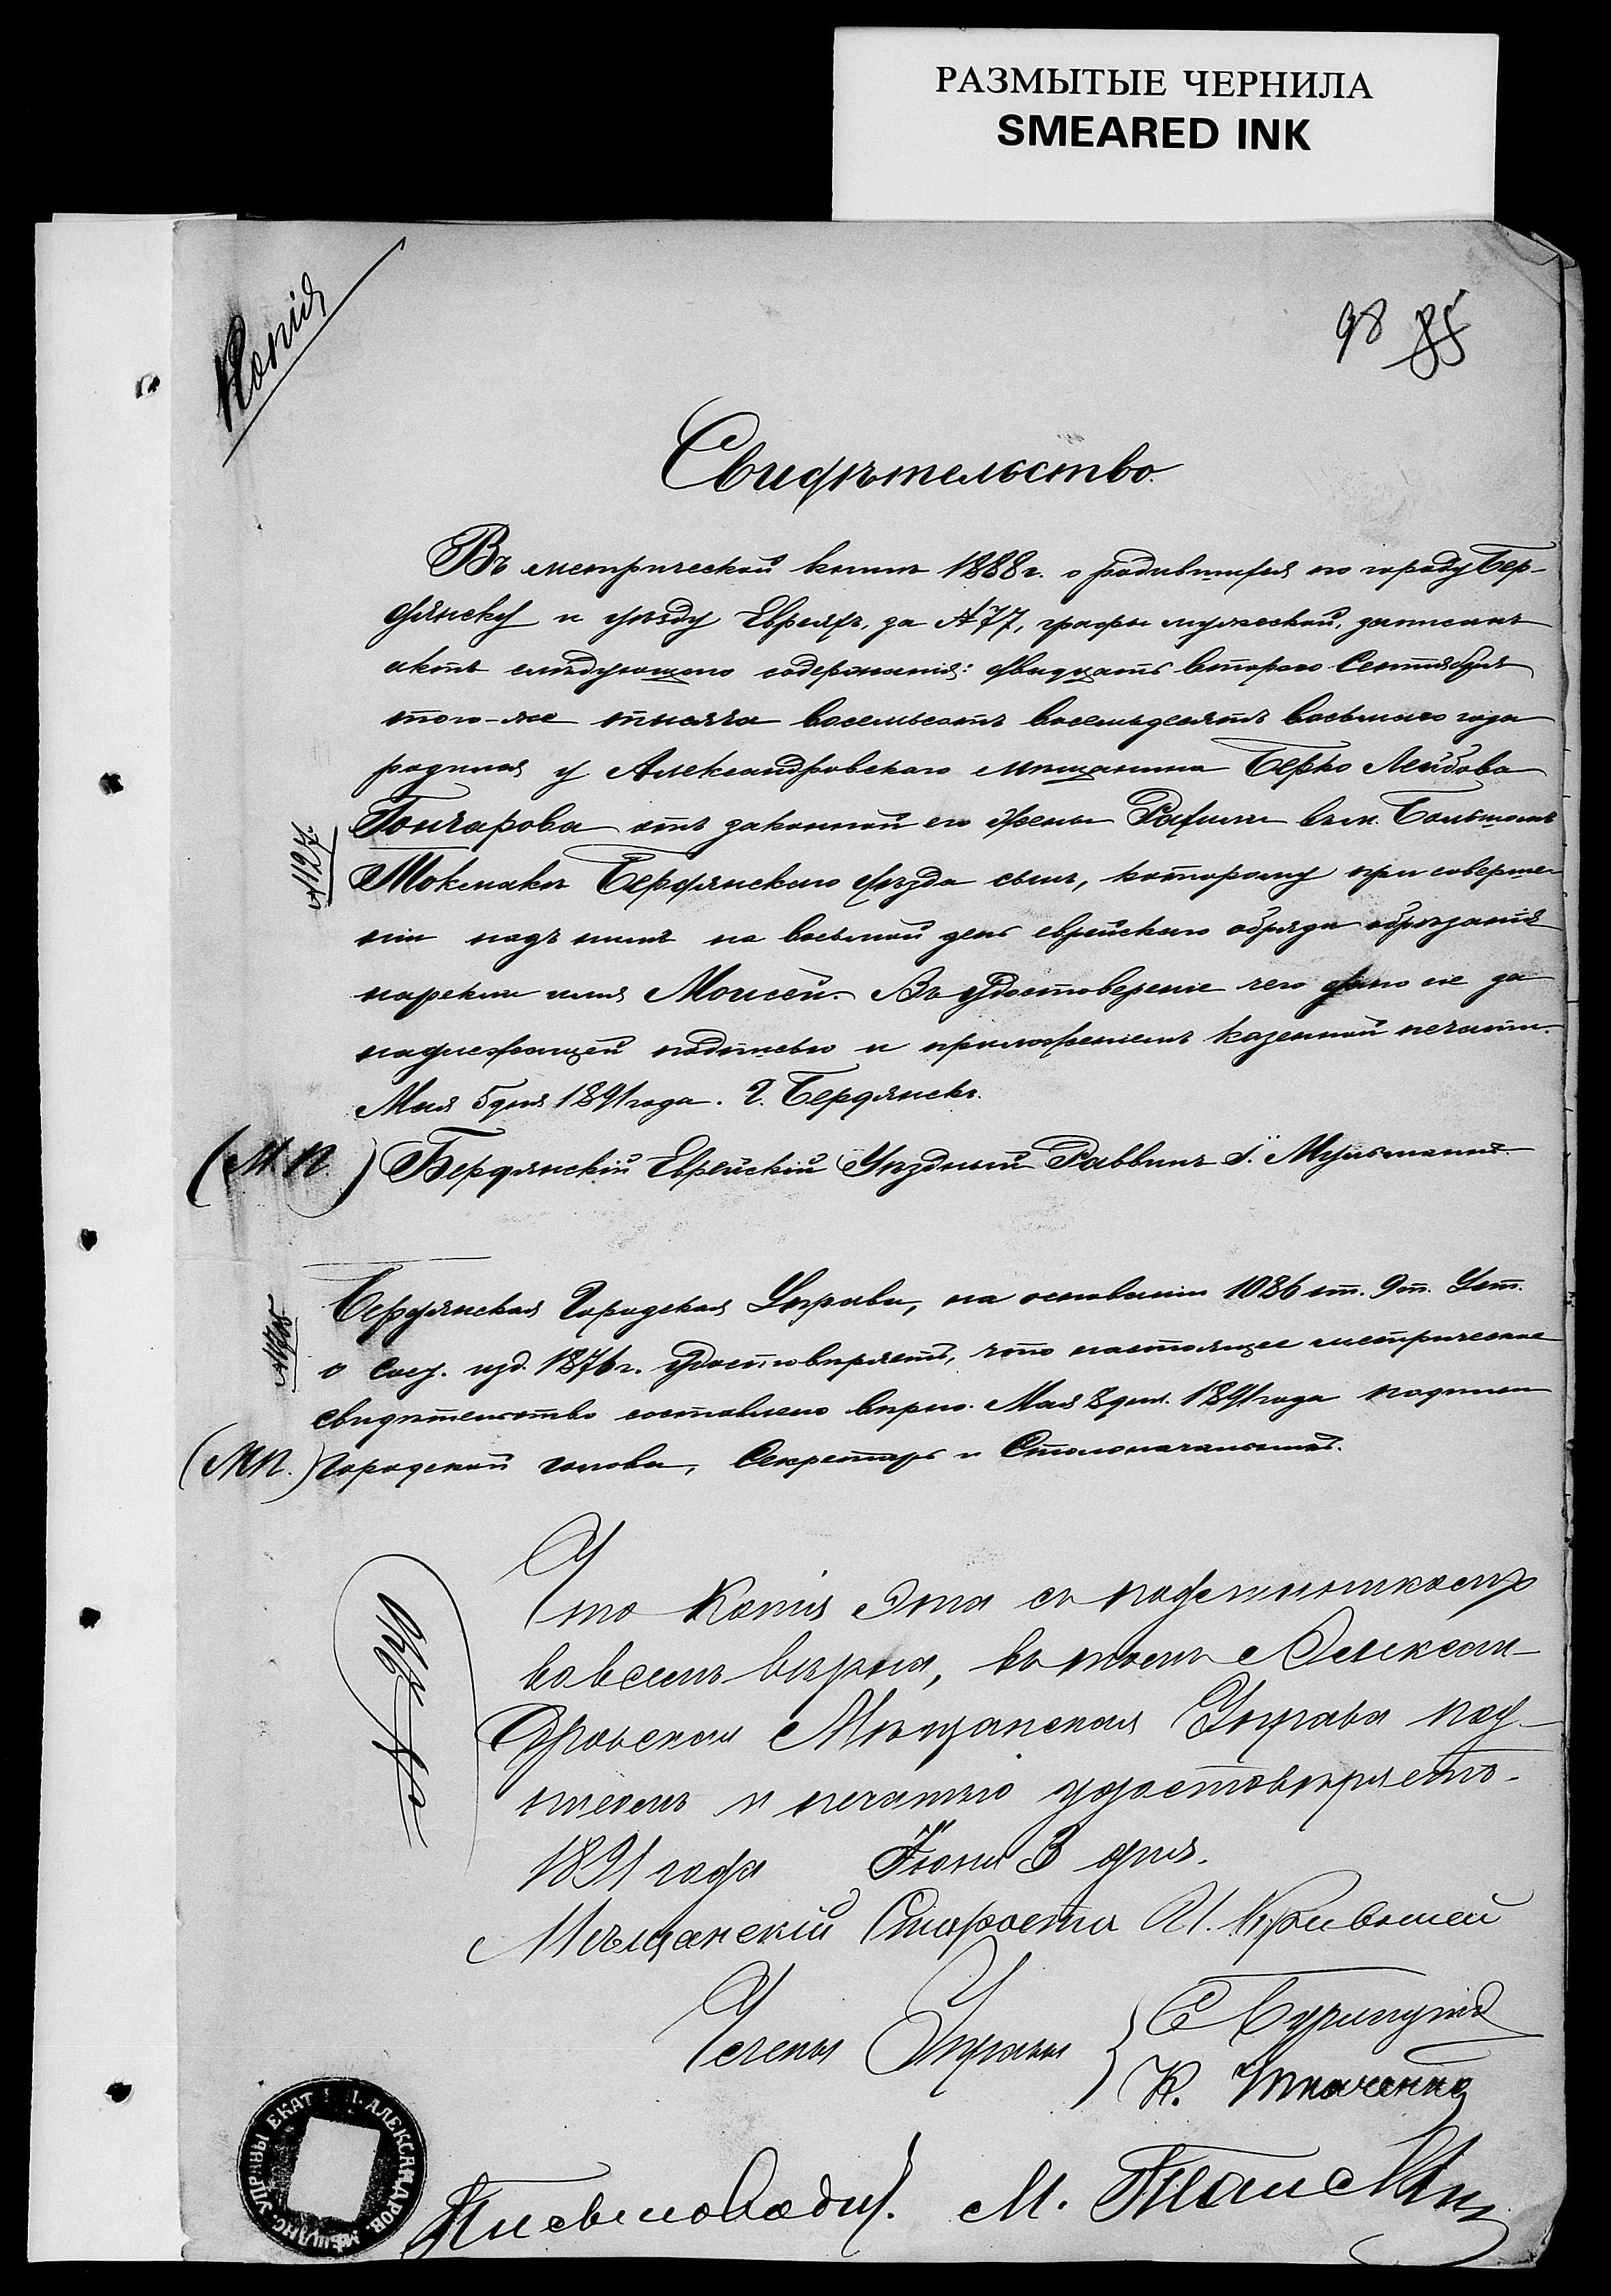 РАЗМЫТЫЕ ЧЕРНИЛА
SMEARED INK
Копія
98 85
Свидѣтельство.
Въ метрической книгѣ 1888г. о родившихся по городу Бер-
дянску и уѣзду Евреяхъ, за №77, графы мужеской, записанъ
актъ слѣдующаго содержанія: двадцать второго Сентября
того-же тысяча восемьсотъ восемьдесятъ восьмого года
родился у Александровскаго мѣщанина Берко Лейбова
Гончарова отъ законной его жены Рахили въ м. Большомъ
№ 127.
Токмакѣ Бердянскаго уѣзда сынъ, которому при соверше-
ніи надъ нимъ на восьмой день еврейскаго обряда обрѣзанія
наречено имя Моисей. Въ удостовереніе чего дано сіе за
надлежащей подписью и приложеніемъ казенной печати.
Мая 5 дня 1891 года. Г. Бердянскъ.
(М.П.) Бердянскій Еврейскій Уѣздный Раввинъ
Бердянская Городская Управа, на основаніи 1086 ст. 9 т. Уст.
о Сост. изд. 1876 г. удостовѣряетъ, что настоящее метрическое
свидѣтельство составлено вѣрно. Мая 8 дня 1891 года подписи
(М.П.) Городской голова, Секретарь и Столоначальникъ.
Что Копія Эта съ подлинникомъ
во всемъ вѣрна, въ томъ Алексан-
дровская Мѣщанская Управа под-
писомъ и печатью удостовѣряетъ.
1891 года Іюня 3 дня.
Мѣщанскій Староста И. Кривошей
Члены Управы
К. Ткаченко
Письмоводит.
М.
УПРАВЫ ЕКАТ. Г. АЛЕКСАНДРОВ. МѢЩАНС.